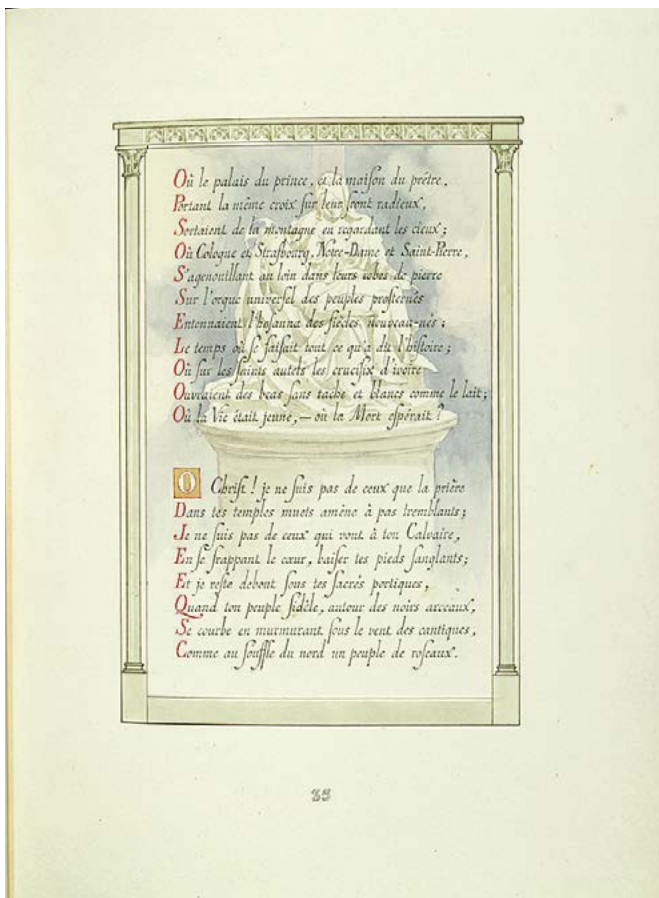 Où le palais du prince, et la maiſon du prêtre,
Portant la même croix ſur leur front radieux,
Sortaient de la montagne en regardant les cieux ;
Où Cologne et Straſbourg, Notre-Dame et Saint-Pierre,
S'agenouillant au loin dans leurs robes de pierre
Sur l'orgue univerſel des peuples proſternés
Entonnaient l'hoſanna des ſiècles nouveau-nés ;
Le temps où ſe faiſait tout ce qu'a dit l'hiſtoire ;
Où ſur les ſaints autels les crucifix d'ivoire
Ouvraient des bras ſans tache et blancs comme le lait ;
Où la Vie était jeune, — où la Mort eſpérait ?
O Chriſt ! je ne ſuis pas de ceux que la prière
Dans tes temples muets amène à pas tremblants ;
Je ne ſuis pas de ceux qui vont à ton Calvaire,
En ſe frappant le cœur, baiſer tes pieds ſanglants ;
Et je reſte debout ſous tes ſacrés portiques,
Quand ton peuple fidèle, autour des noirs arceaux,
Se courbe en murmurant ſous le vent des cantiques,
Comme au ſouffle du nord un peuple de roſeaux.